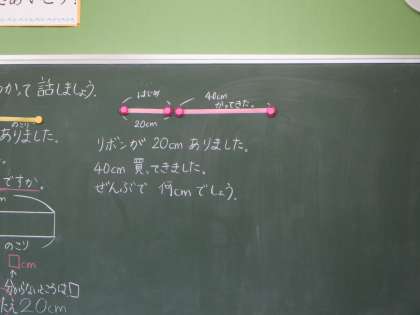 って 話しましょう。
はじめ
40cm
かってきた。
20cm
リボンが 20cm ありました。
40cm 買ってきました。
ぜんぶで 何cmでしょう。
のこり
ありました。
ですか。
のこり
□cm
わからないところは□
20cm